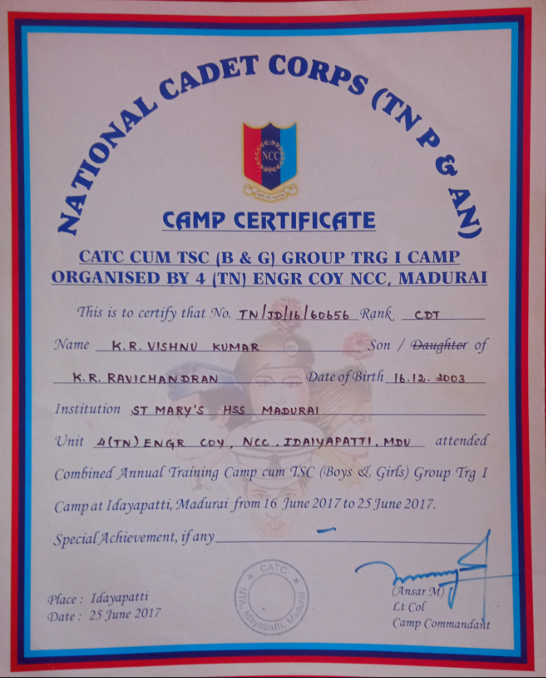 NATIONAL CADET CORPS (TN P & AN)
NCC
CAMP CERTIFICATE
CATC CUM TSC (B & G) GROUP TRG I CAMP
ORGANISED BY 4 (TN) ENGR COY NCC, MADURAI
This is to certify that No. TN/JD/16/60656 Rank CDT
Name K.R. VISHNU KUMAR Son / Daughter of
K.R. RAVICHANDRAN Date of Birth 16.12.2003
Institution ST MARY'S HSS MADURAI
Unit 4(TN) ENGR COY, NCC. IDAIYAPATTI, MDU attended
Combined Annual Training Camp cum TSC (Boys & Girls) Group Trg I
Camp at Idayapatti, Madurai from 16 June 2017 to 25 June 2017.
Special Achievement, if any –
CATC
Idayapatti, Madurai
Place : Idayapatti
Date : 25 June 2017
(Ansar M)
Lt Col
Camp Commandant